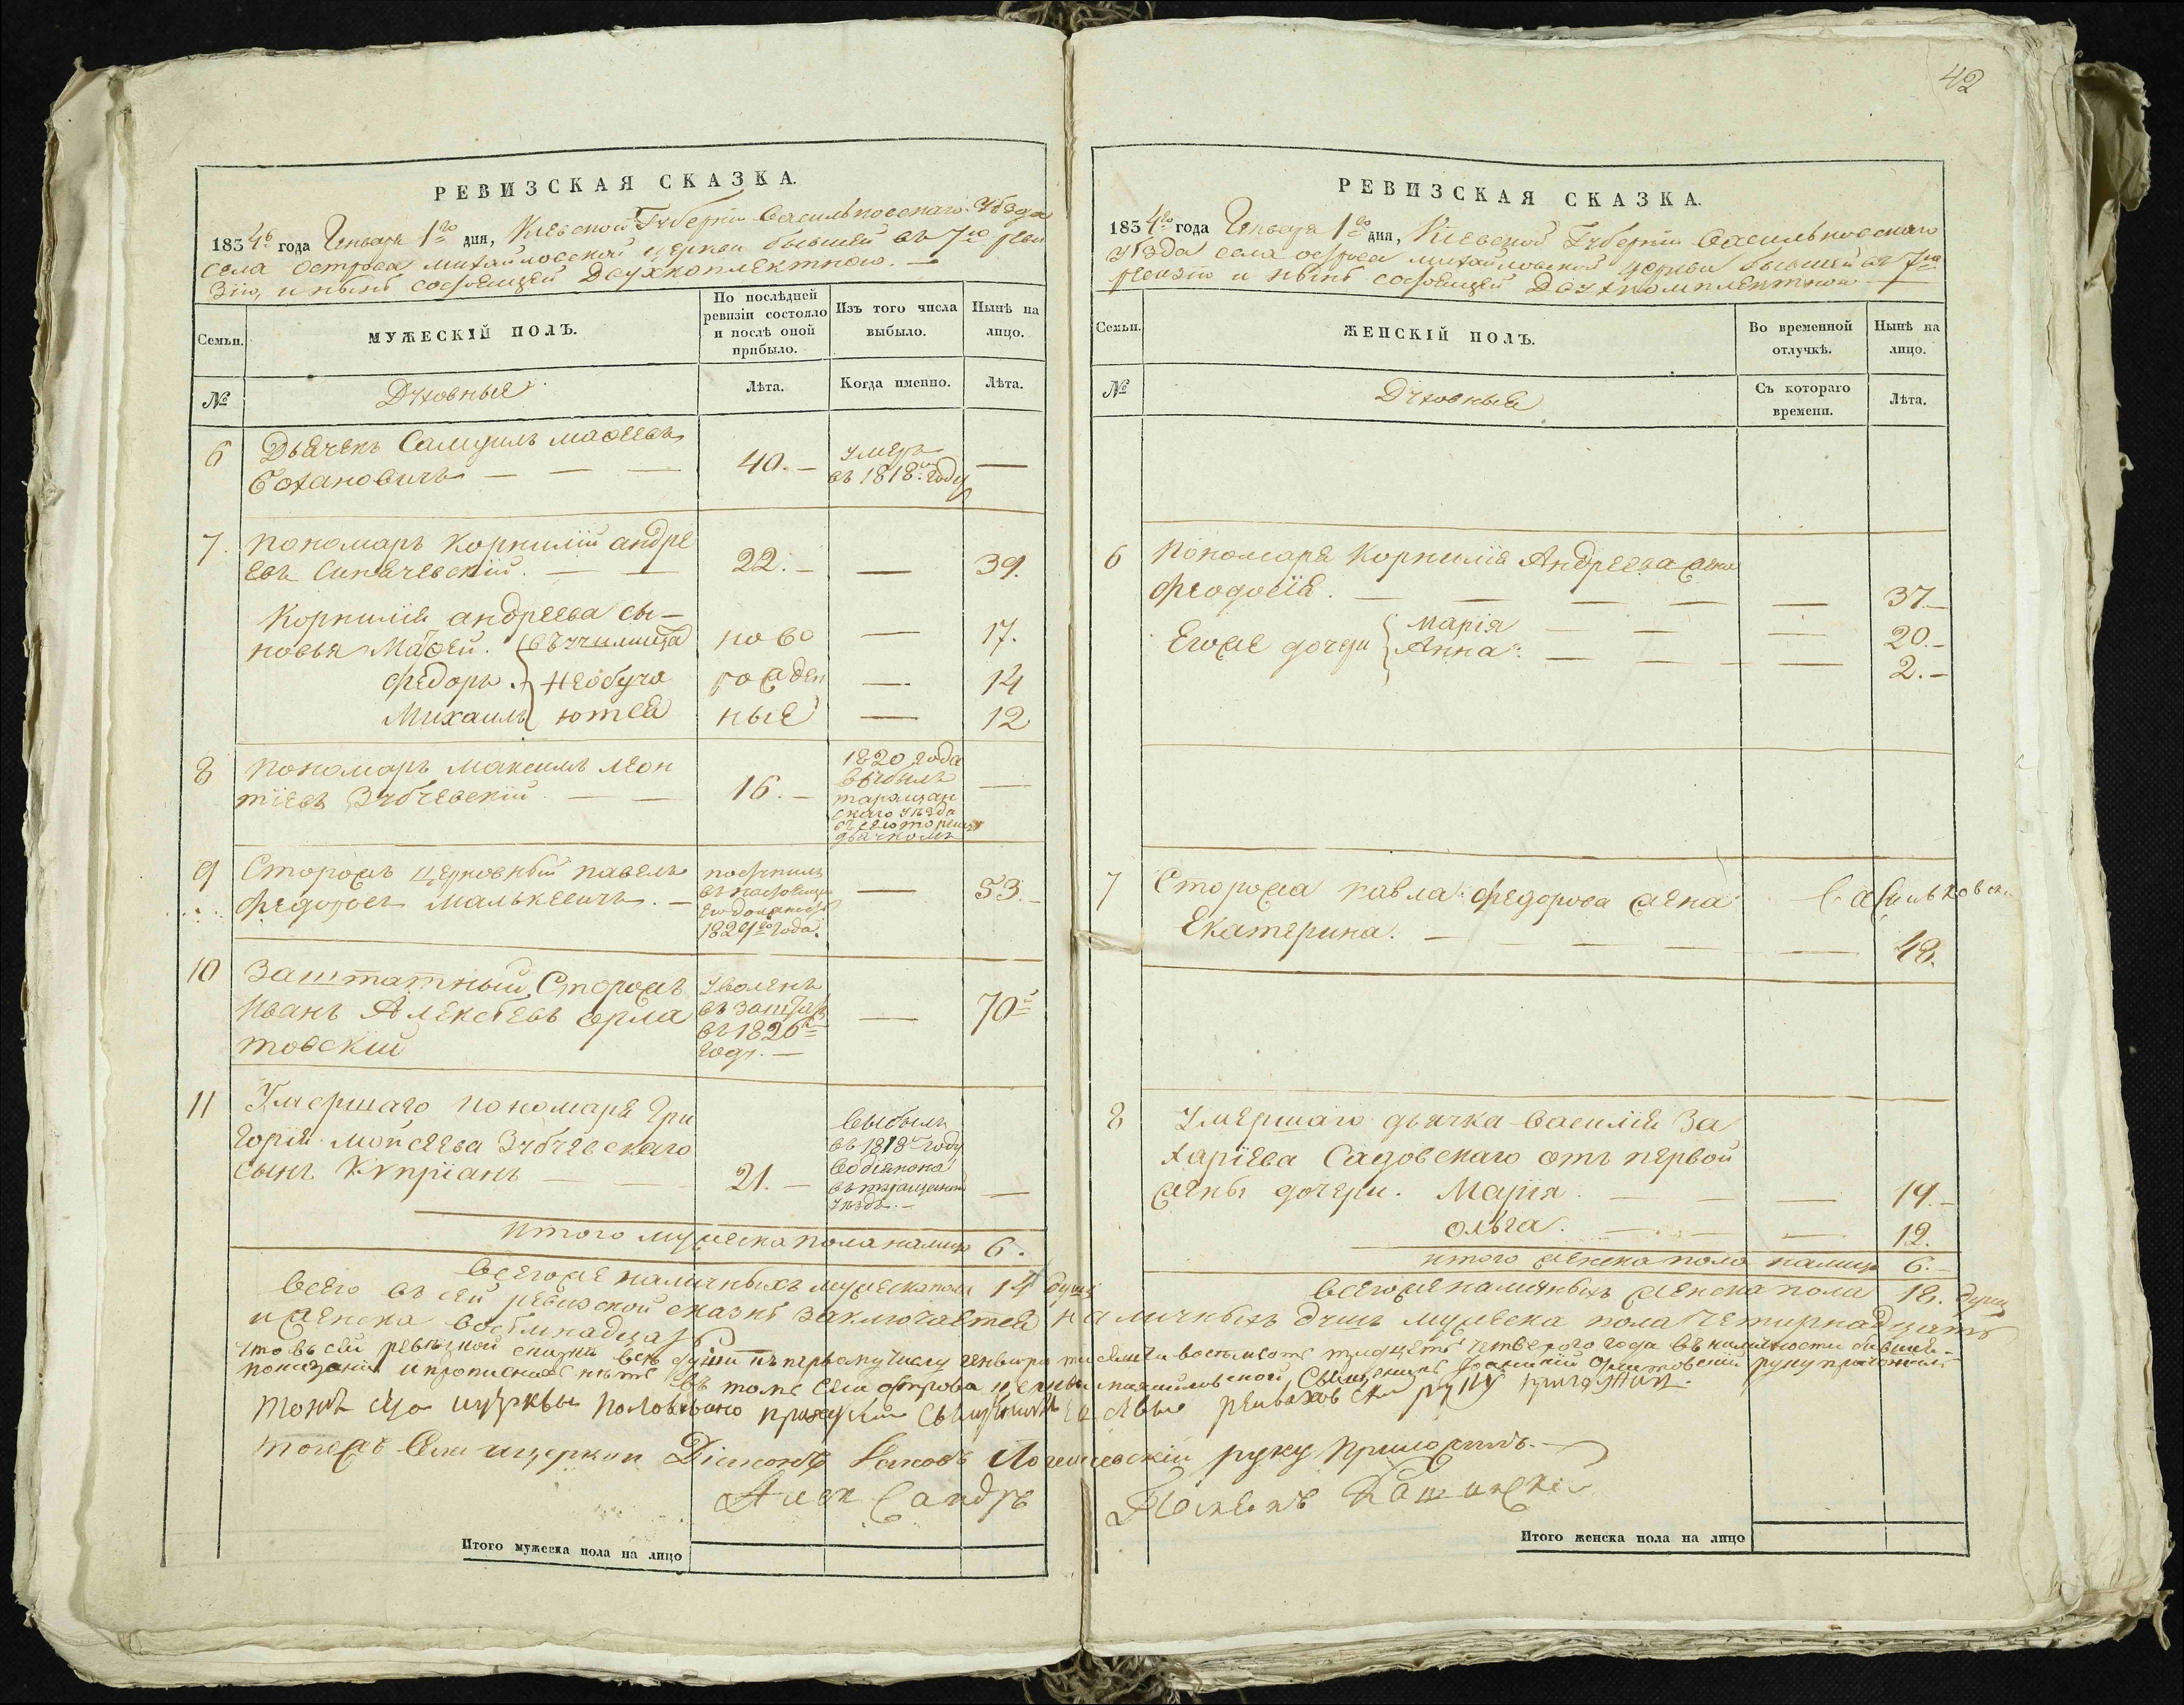 РЕВИЗСКАЯ СКАЗКА.
1834го года Генваря 1го дня, Киевской Губернiи Васильковскаго Уѣзда
села Острова Михайловской церкви бывшей въ 7ю реви
зiю, и нынѣ состоящей Двухкомплектною. —
Семьи.
МУЖЕСКIЙ ПОЛЪ.
По послѣдней
ревизiи состояло
и послѣ оной
прибыло.
Изъ того числа
выбыло.
Нынѣ на
лицо.
№
Духовные
Лѣта.
Когда именно.
Лѣта.
6 Дьячекъ Самуилъ Мафеевъ
40. — умеръ —
Бохановичъ — — — въ 1818м Году
7. пономарь Корнилiй андре
евъ Синѣчевскiй. — — 22. — — 39.
Корнилiя андреева сы-
новья Матфей. въ училищѣ ново — 17.
Федоръ. необуча рожден — 14
Михаилъ ются ные — 12
8 пономарь максимъ леон
тiевъ Зубчевскiй — — 16. — —
1820 года
выбылъ
таращан
скаго уѣзда
дьячкомъ
9 Сторожъ церковный павелъ
федоровъ Малькевичъ. —
поступилъ
1829го Года. — 53. —
10 Заштатный Сторожъ
Иванъ Алексѣевъ орла
товскiй
Уволенъ
въ заштатъ
въ 1826м
Году. — — 70
11 Умершаго пономаря Гри
горiя мойсеева Зубчевскаго
сынъ Купрiанъ — — 21. —
выбылъ
въ 1818м году
во дiакона
уѣздъ. — —
итого мужеска пола налицо 6.
всегоже наличныхъ мужеска пола 14 душъ
42
РЕВИЗСКАЯ СКАЗКА.
1834го года Генваря 1го дня, Киевской Губернiи Васильковскаго
уѣзда села острова михайловской церкви бывшей въ 7ю
ревизiю и нынѣ состоящей Двухкомплектною —
Семьи.
ЖЕНСКIЙ ПОЛЪ.
Во временной
отлучкѣ.
Нынѣ на
лицо.
№
Духовныя
Съ котораго
времени.
Лѣта.
6 Пономаря Корнилiя Андреева жена
Феодосiя. — — — — — 37. —
Егоже дочери Марiя — — — 20. —
Анна. — — — — 2. —
7 Сторожа павла федорова жена
Екатерина. — — — — — 48.
8 Умершаго дьячка василiя За
харiева Садовскаго отъ первой
жены дочери. Марiя. — — — 19. —
ольга. — — — 12.
итого женска пола налицо 6. —
всегоже наличныхъ женска пола 18. душъ
всего въ сей ревизской сказкѣ заключается наличныхъ душъ мужеска пола четырнадцать
и женска восѣмнадцать
что въ сей ревизкой сказки всѣ души къ первому числу генваря тысяча восемьсотъ тридцать четвертого года въ наличности бывшiе
показани и прописныхъ нѣтъ въ томъ села острова церкви михайловской Священникъ руку приложилъ
руку приложил.
тогожъ села и церкви Дiаконъ руку приложилъ. —
Александръ
Итого мужеска пола на лицо
Итого женска пола на лицо